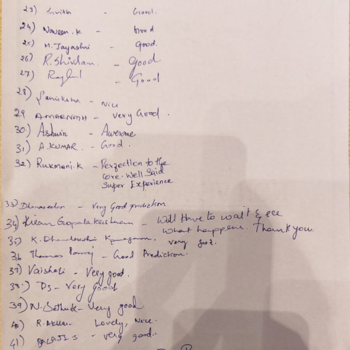 23) - Good.
24) Naveen.K - Good
25) M. Jayashri - Good.
26) R. Shivdan - Good
27) - Good
28) Samiksha - Nice
29 AMARNATH - Very Good.
30) Ashwin - Awesome
31) A. KUMAR - Good.
32) Rukmani.K - Perfection to the
Core. Well Said
Super Experience
33) - Very Good prediction
34) Kiran Gopalakrishnan - Will have to wait & see
what happens. Thank you
35) K. very good.
36 Thomas - Good Prediction.
37) Vaishali - Very good.
38) Ds - Very Good
39) N. Sathish - Very good
40) R. Lovely, Nice.
41) - very good.